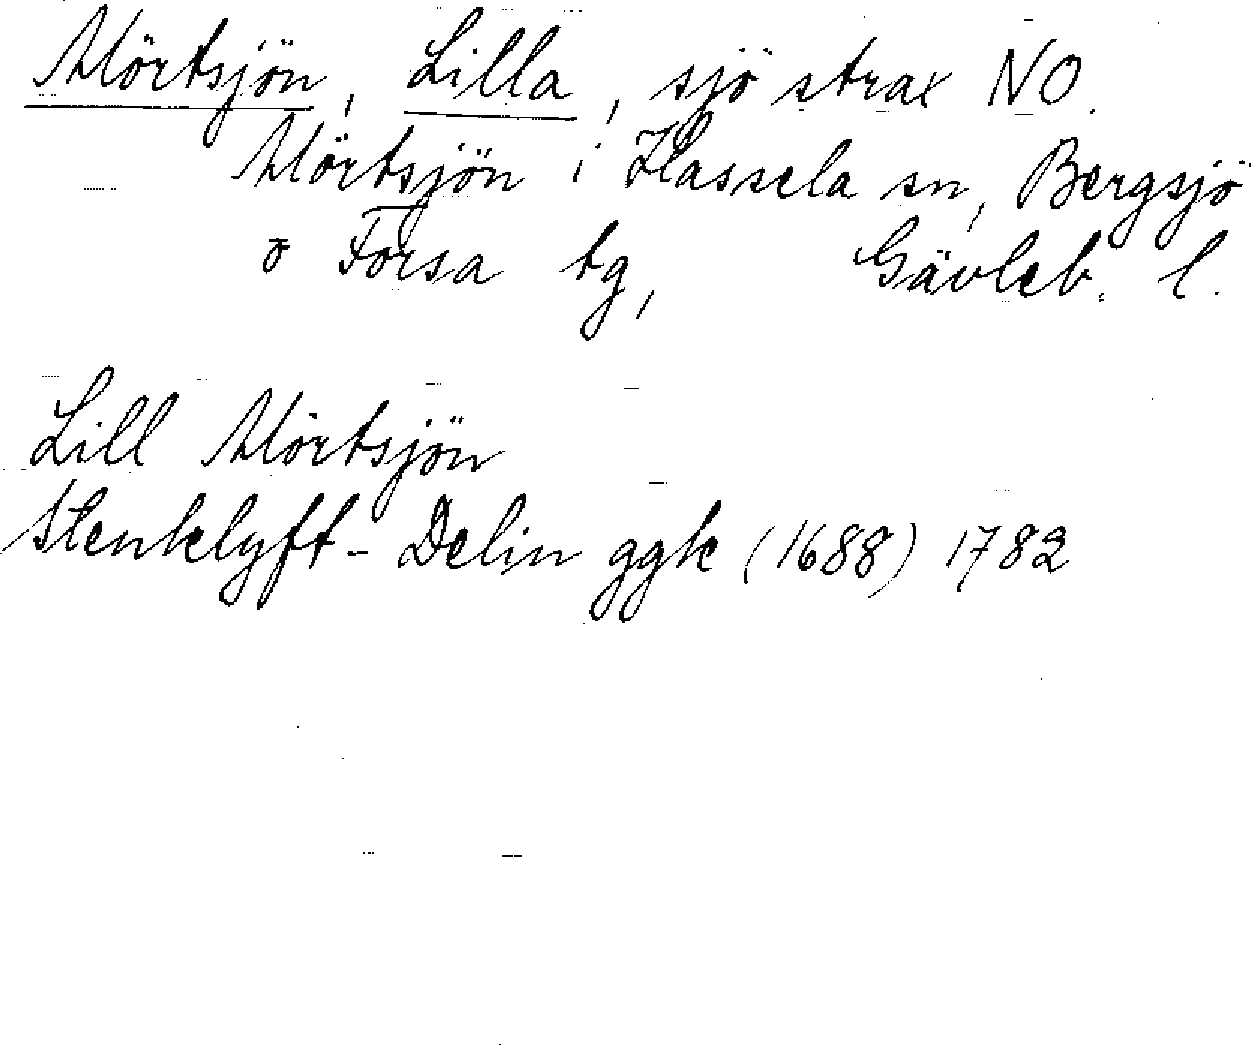 Mörtsjön, Lilla, sjö strax NO.
Mörtsjön i Hassela sn, Bergsjö
o Forsa tg, Gävleb. l.
Lill Mörtsjön
Stenklyft- Delin ggk (1688) 1782